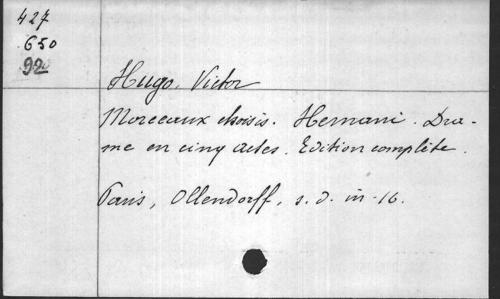 427
650
92
Hugo, Victor
Morceaux choisis. Hernani. Dra-
me en cinq actes. Edition complète.
Paris, Ollendorff, s. d. in-16.